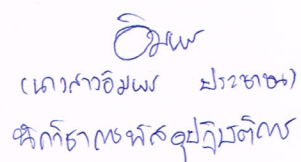 อัมพร
(นางสาวอัมพร ประชาชน)
นักวิชาการพัสดุปฏิบัติการ